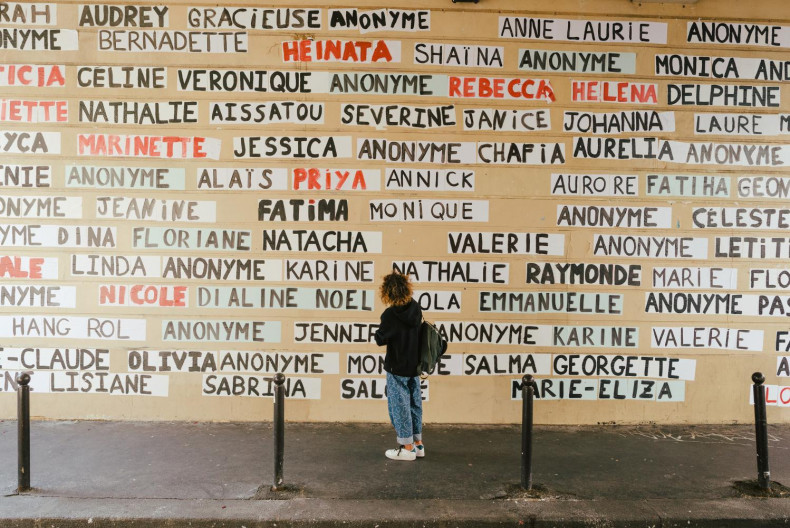 RAH AUDREY GRACIEUSE ANONYME ANNE LAURIE ANONYME
NYME BERNADETTE HEINATA SHAÏNA ANONYME MONICA AND
TICIA CELINE VERONIQUE ANONYME REBECCA HELENA DELPHINE
IETTE NATHALIE AISSATOU SEVERINE JANICE JOHANNA LAURE M
YCA MARINETTE JESSICA ANONYME CHAFIA AURELIA ANONYME
NIE ANONYME ALAÏS PRIYA ANNICK AURORE FATIHA GEOR
NONYME JEANINE FATIMA MONIQUE ANONYME CÉLESTE
YME DINA FLORIANE NATACHA VALERIE ANONYME LETITI
ALE LINDA ANONYME KARINE NATHALIE RAYMONDE MARIE FLO
NYME NICOLE DIALINE NOEL LOLA EMMANUELLE ANONYME PAS
HANG ROL ANONYME JENNIF ANONYME KARINE VALERIE FA
E-CLAUDE OLIVIA ANONYME MONI E SALMA GEORGETTE A
EN LISIANE SABRINA SAL MARIE-ELIZA LO